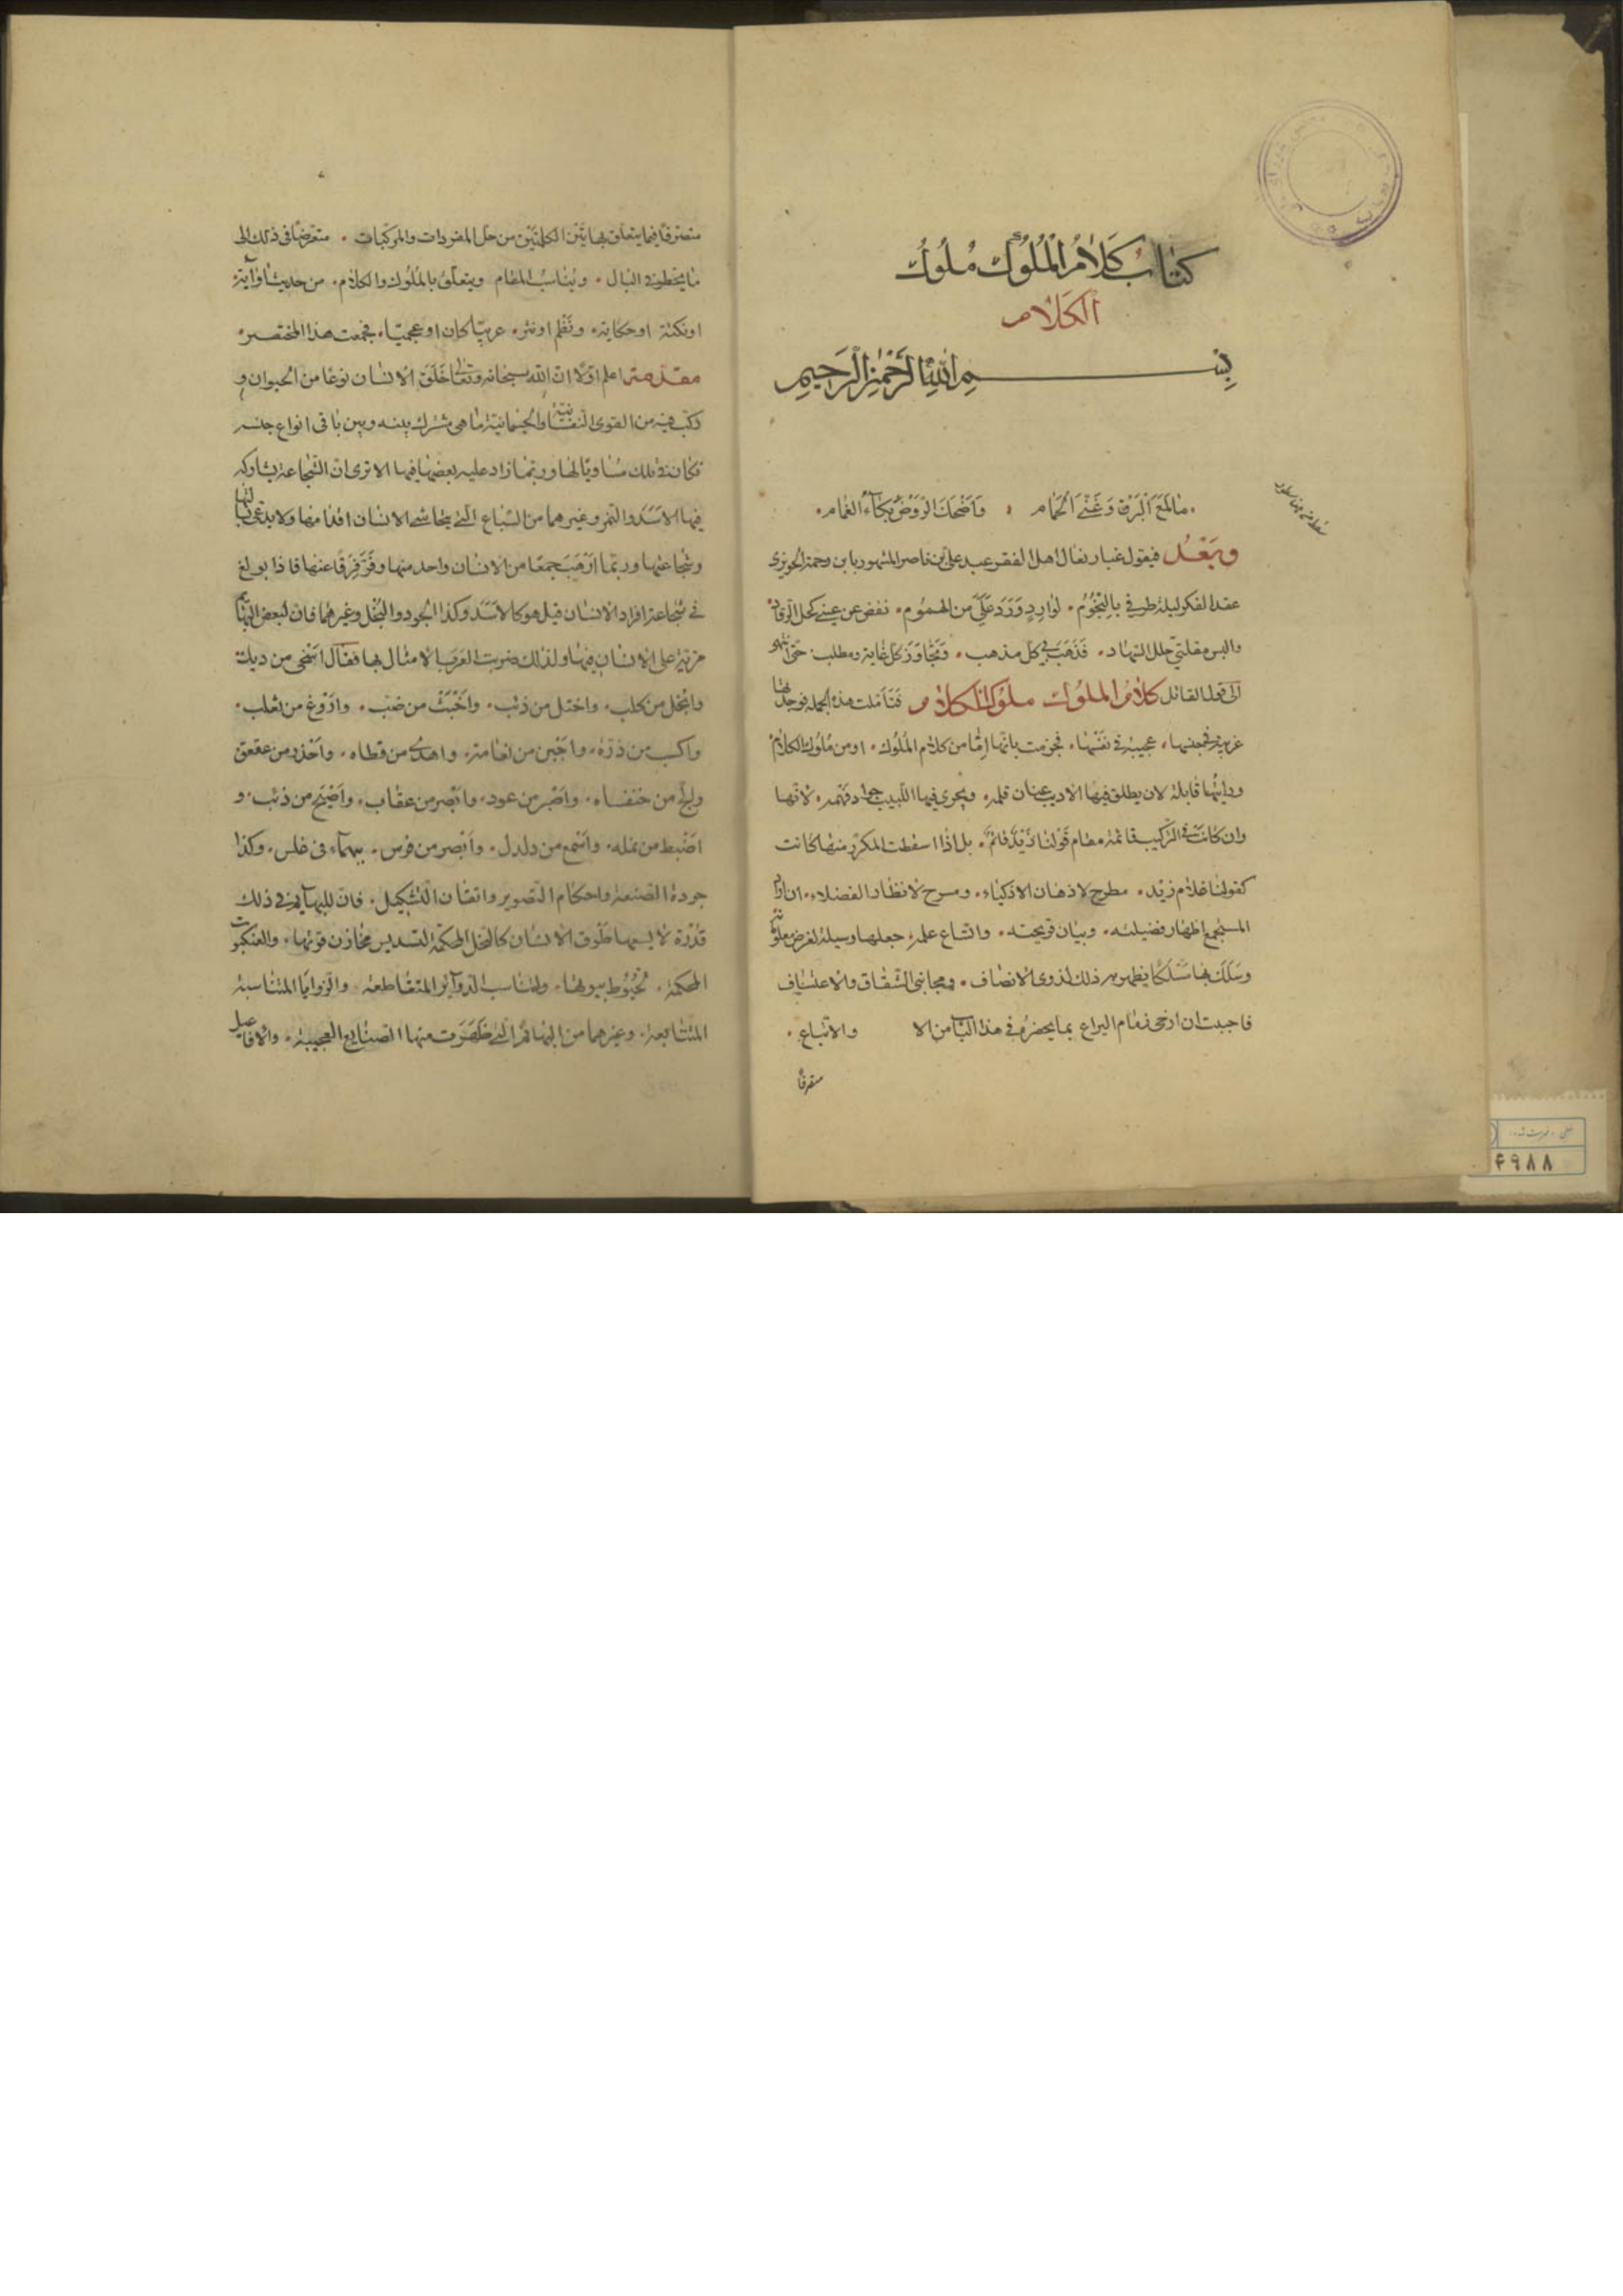 كتاب كَلَامُ الْمُلُوك مُلُوكُ
الكَلَام
بِسْمِ اللهِ الرَّحْمٰنِ الرَّحِيمِ
مالمَعَ البَرق وَغَنّى الحَمام وَاضحَكَ الرّوضَ بُكآءُ الغمام
وبَعْدُ فيقول غبار نعال اهل الفقر عبد علي بن ناصر المشهور بابن رحمة الحويزي
عقد الفكر ليلة طرفي بالنجُوم لوارِدٍ وَرَدَ عَلَيّ من الهمُوم نفض عن عيني كحل الرقاد
والبس مقلتي حلل السهاد فَذهَبَ بي كل مذهب وتجاوَز كل غاية ومطلب حتى انتهى
الى قول القائل كلامُ الملُوك ملوك الكلام فتأملت هذه الجملة فوجدتها
غريبة في جنسها عجيبة في نفسها فجزمت بانّها امّا من كلام المُلُوك او من مُلُوك الكلام
ورايتُها قابلة لان يطلق فيها الاديب عنان قلمه ويجرى فيها اللّبيب جواد فهمه لانها
وان كانت في التركيب قائمة مقام قولنا زَيدٌ قائمٌ بل اذا اسقطت المكرر منها كانت
كقولنا غلام زيد مطرح لاذهان الاذكياء ومسرح لانظار الفضلاء ان اراد
المستجمع اظهار فضيلته وبيان قريحته واتساع علمه جعلها وسيلة لغرض
وسَلَكَ بها مَسْلَكًا يظهر به ذلك لذوى الانصاف ومجانبى الشّقاق والاعتساف
فاجبت ان ارخى زمام اليراع بما يحضرُني في هذا الباب من الا والاتباع
متصرفا
متصرفا فيما يتعلق بهاتين الكلمتين من حل المفردات والمركبات متعرضًا في ذلك الى
ما يخطر في البال ويناسب المقام ويتعلّق بالمُلُوك والكلام من حديث او آية
او نكتة او حكاية ونَظم او نثر عربيّا كان او عجميّا فجمعت هذا المختصر
مقدمة اعلم اوّلًا انّ الله سبحانه وتعالى خَلَقَ الانسان نوعًا من الحيوان و
ركّب فيه من القوى النفسانية والجسمانية ما هي مشترك بينه وبين باقى انواع جنسه
فكان في تلك مساويًا لها وربّما زاد عليه بعضها فيها الا ترى ان الشجاعة يشاركه
فيها الاسَد والنمر وغيرهما من السّباع الّتي يتحاشى الانسان اقدامها ولا يدعى
وشجاعتها وربّما ارْهَبَ جمعًا من الانسان واحد منها وفَرّ فَرَقًا عنها فاذا بولغ
في شجاعة افراد الانسان قيل هو كالاسَد وكذا الجود والبُخل وغيرهما فان لبعض البهائم
مزيّة على الانسان فيها ولذلك ضربت العرب الامثال بها فقال اسْخى من ديك
وابخل من كلب واختل من ذئب واَخْبَثُ من ضبّ واروغ من ثعلب
واكسب من ذرّه واجبَن من نعامة واهدى من قطاه واَحْذر من عقعق
والجّ من خنفساه واصْبر من عود وابْصر من عقاب واضبح من ذئب و
اضْبط من نمله واسمع من دلدل وابْصر من فرس بهماء فى غلس وكذا
جودة الصّنعة واحكام التّصوير واتقان التّشكيل فان للبهايم في ذلك
قدْرة لا يسعها طوق الانسان كالنحل المحكمة لتسديس مخازن قوتها والعنكبوت
المحكمة لخُيُوط بيوتها وتناسب الدوآئر المتقاطعة والزوايا المتناسبة
المتتابعة وغيرهما من البهائم الّتي ظهَرَت منها الصنايع العجيبة والافاعيل
۴۹۸۸